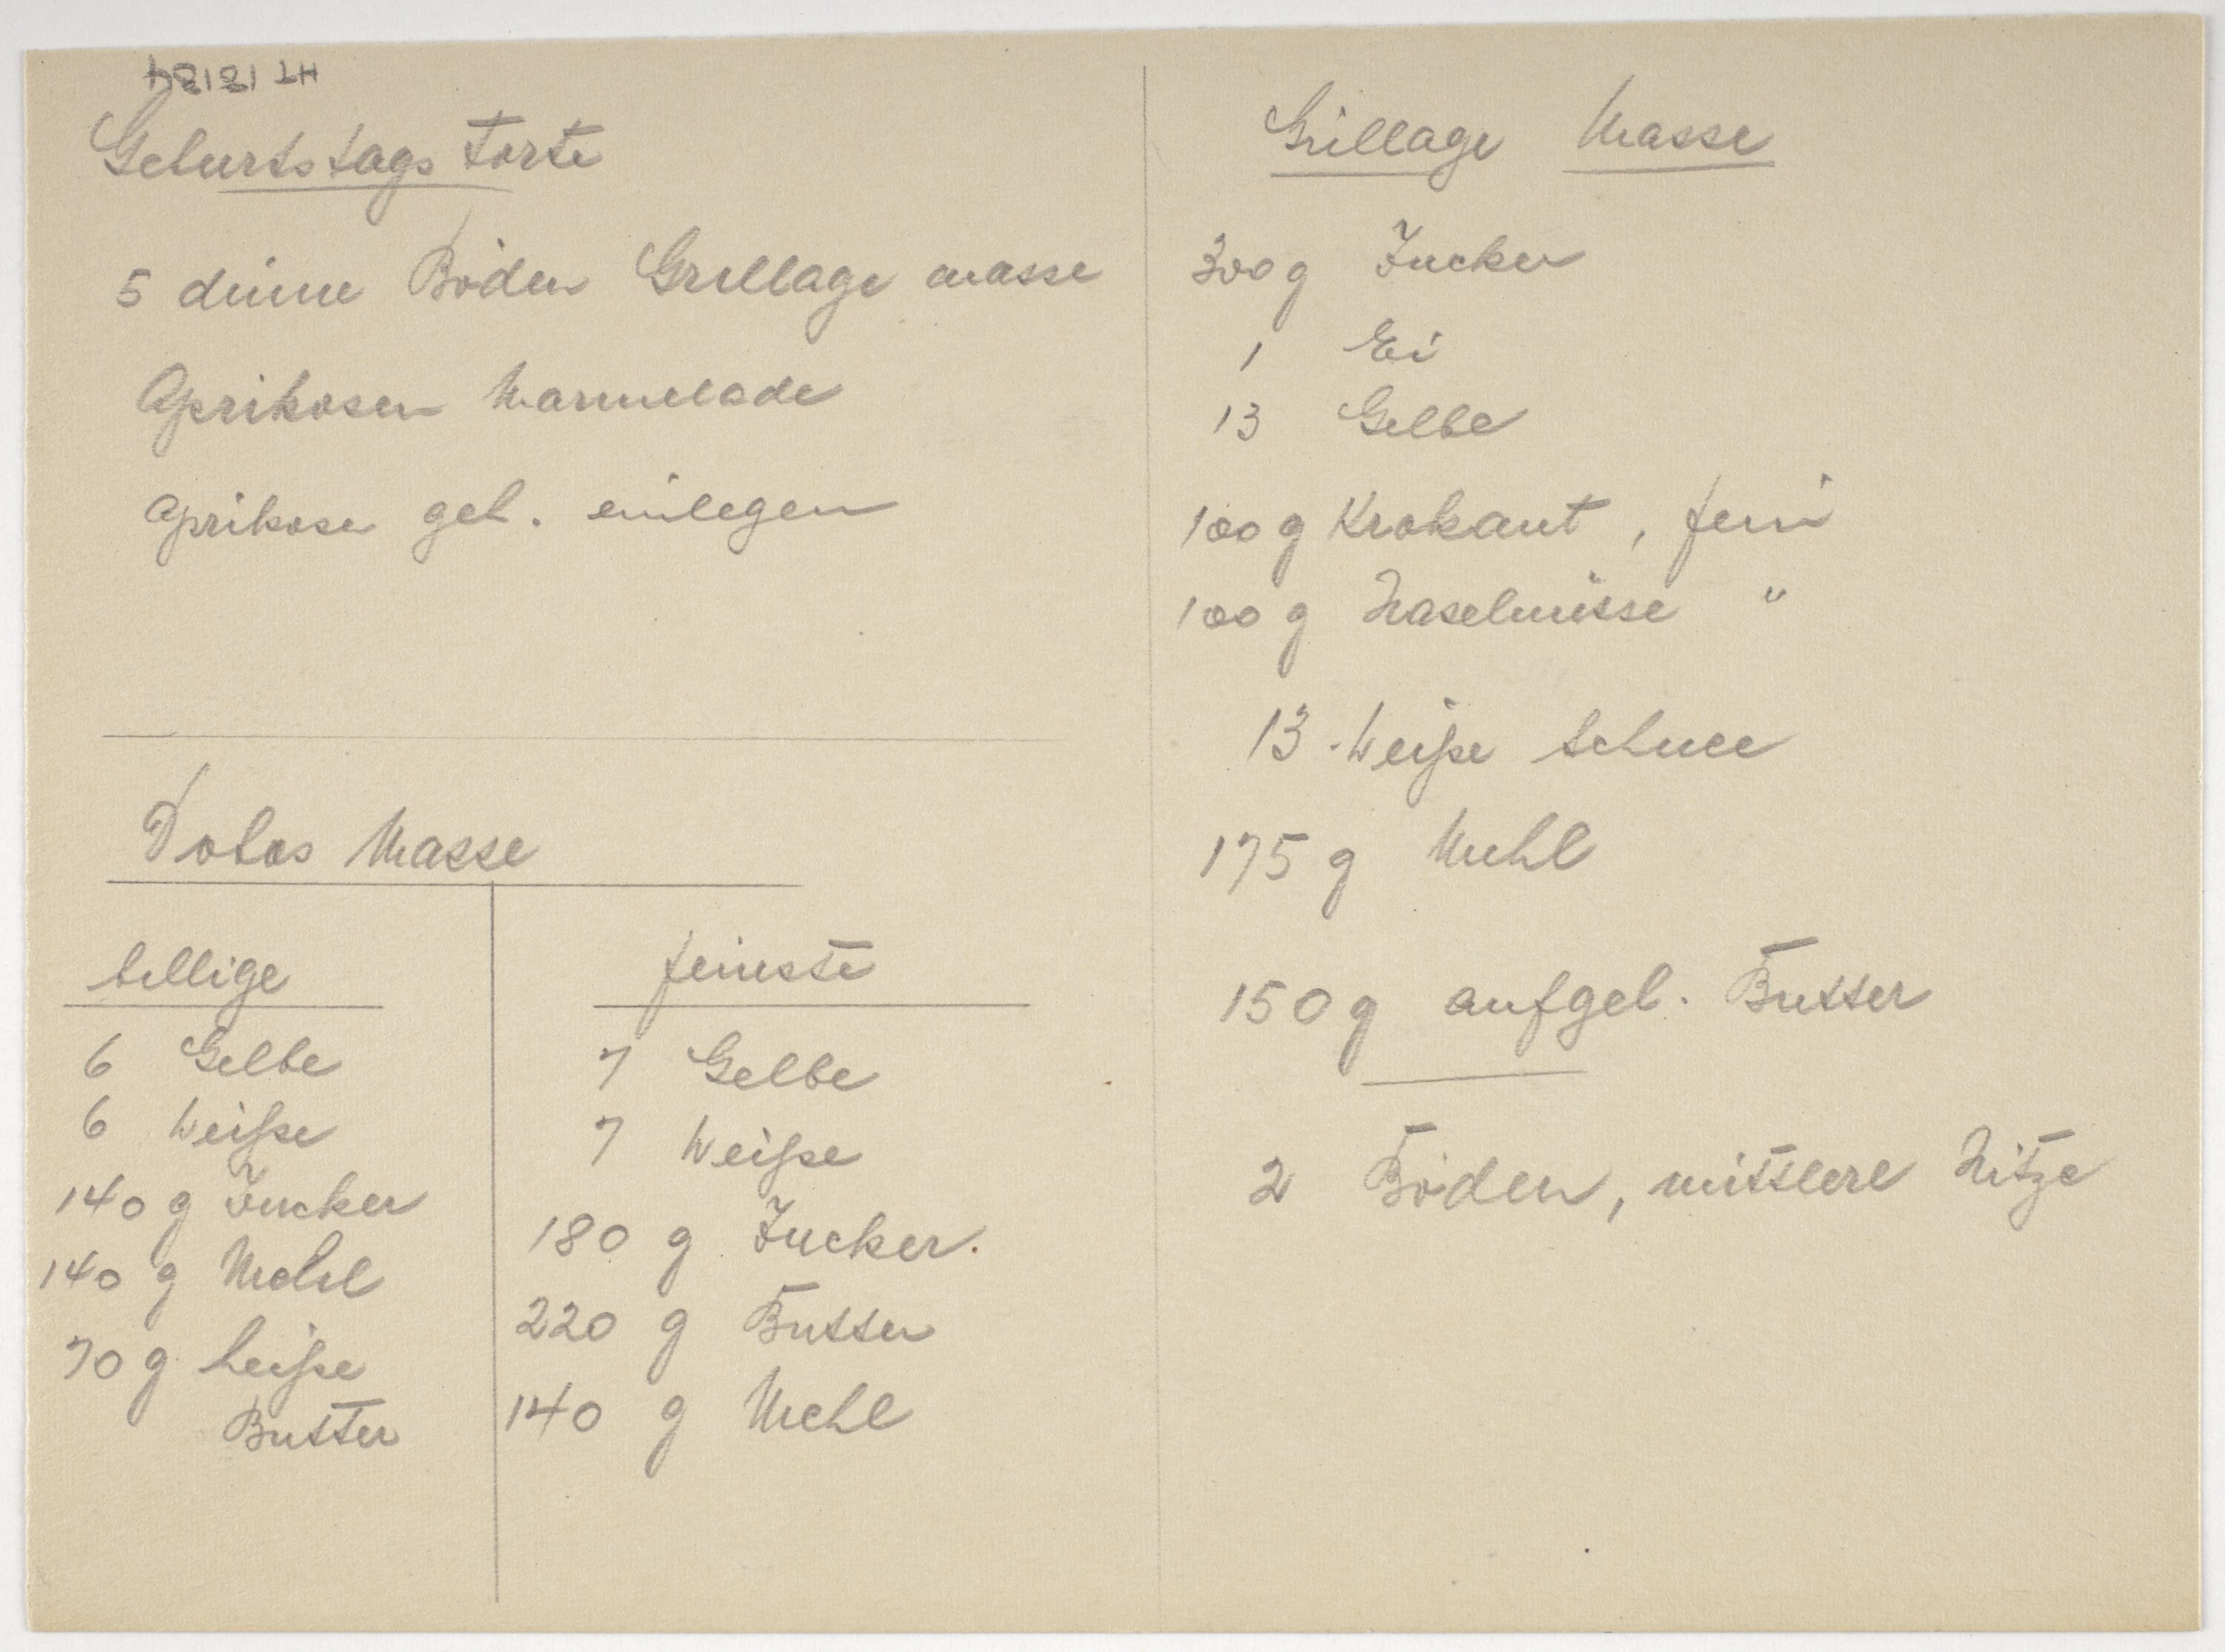 HT 18184
Geburtstags Torte
5 dünne Böden Grillage masse
Aprikosen Marmelade
Aprikosen geh. einlegen
Dobos Masse
billige
6 Gelbe
6 Weiße
140 g Zucker
140 g Mehl
70 g heiße
Butter
feinste
7 Gelbe
7 Weiße
180 g Zucker.
220 g Butter
140 g Mehl
Grillage Masse
300 g Zucker
1 Ei
13 Gelbe
100 g Krokant, fein
100 g Haselnüsse "
13 Weiße Schnee
175 g Mehl
150 g aufgel. Butter
2 Böden, mittlere Hitze